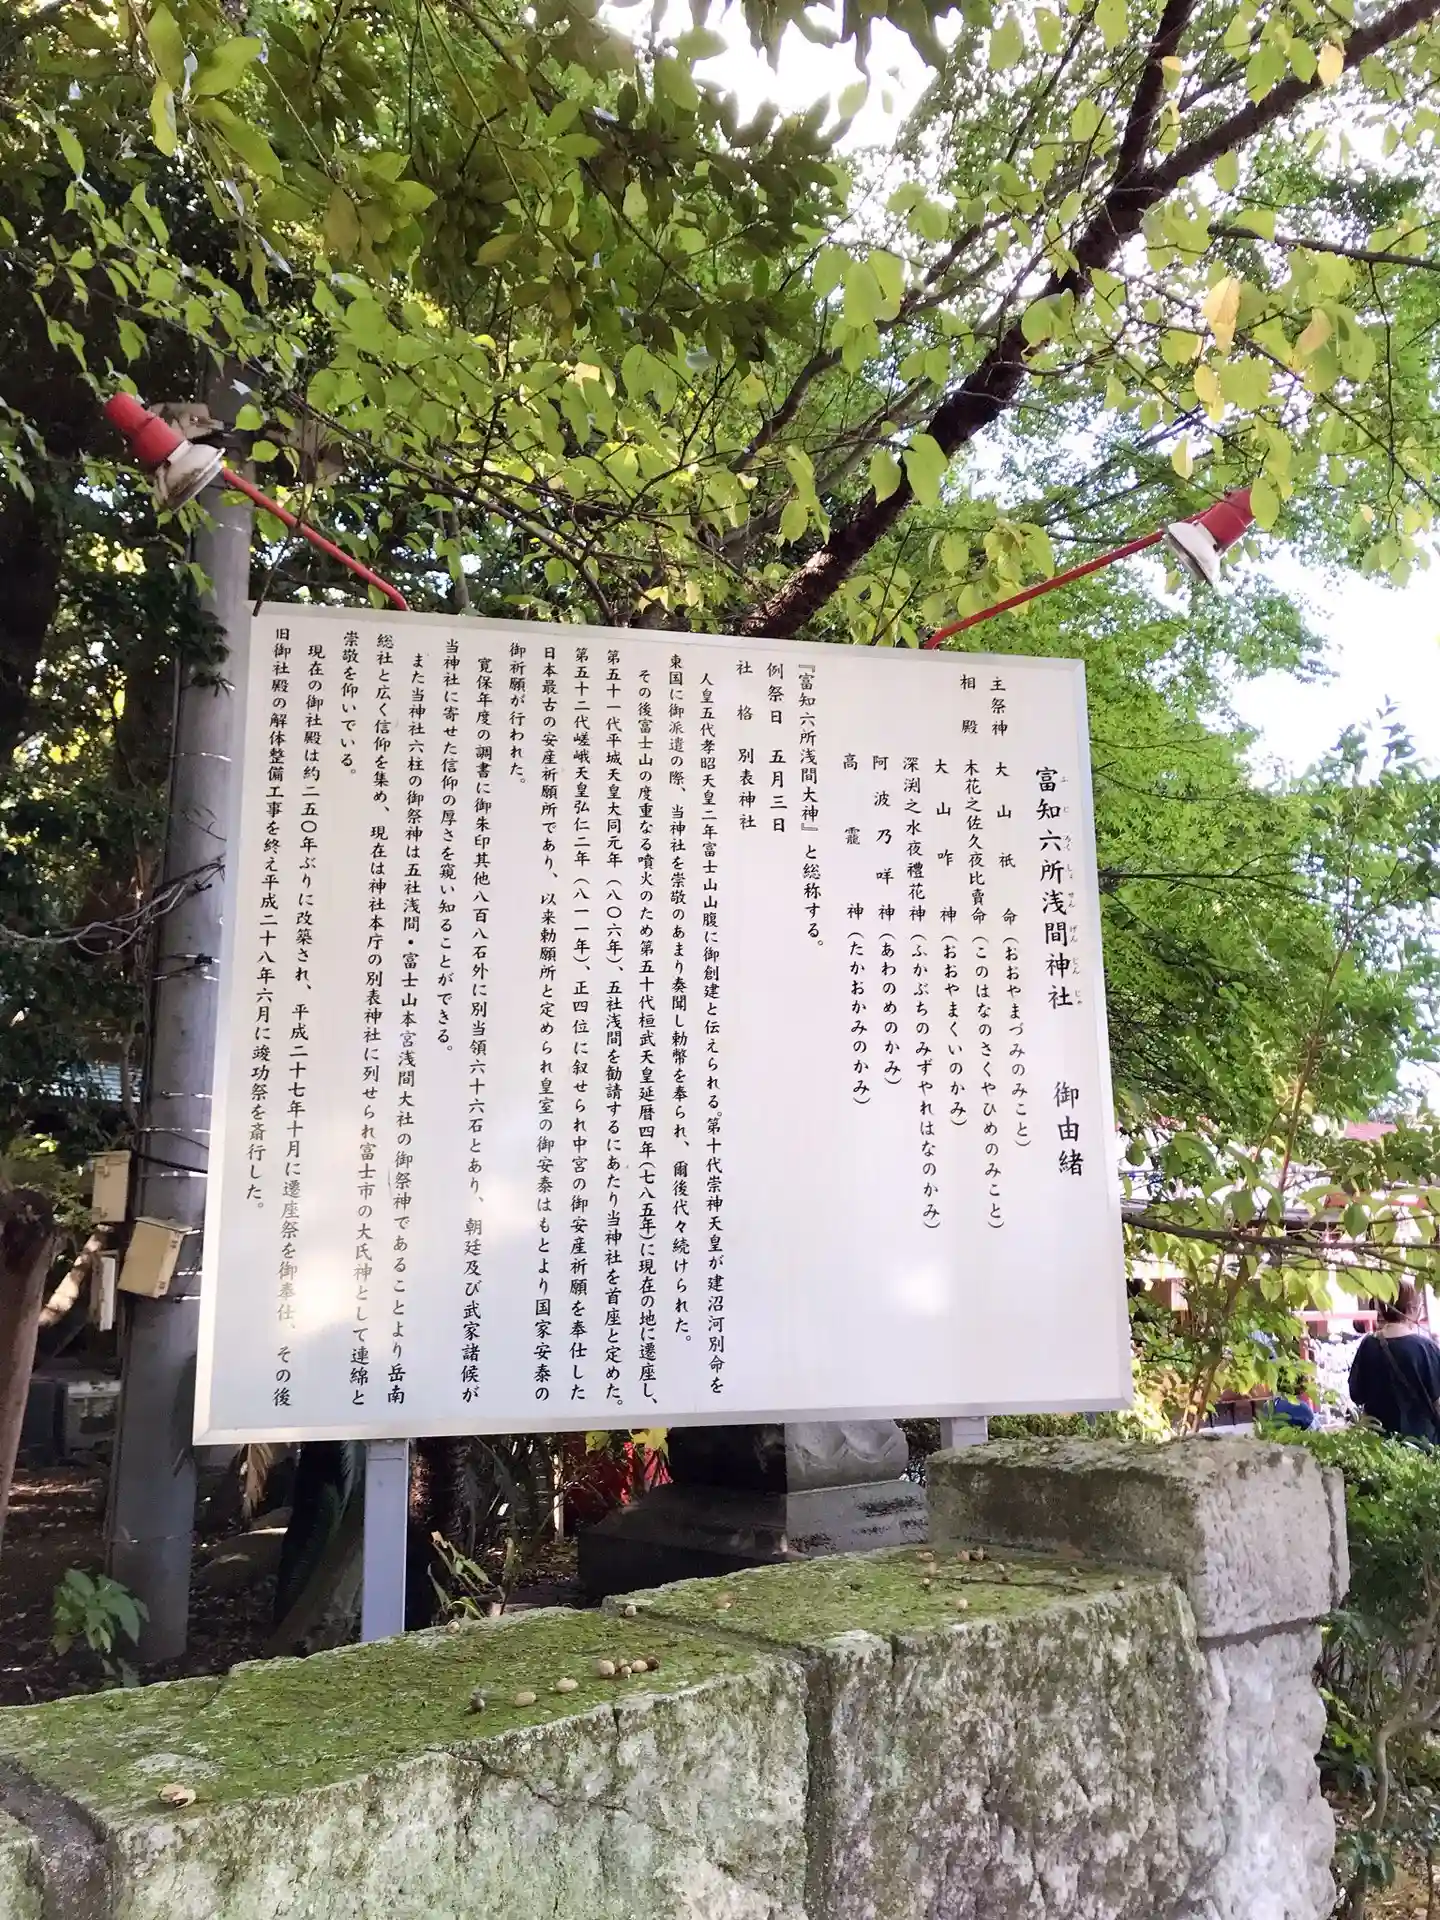 富知六所浅間神社　御由緒
ふじろくしょせんげんじんじゃ
主祭神　大山祇命（おおやまづみのみこと）
相殿　木花之佐久夜比賣命（このはなのさくやひめのみこと）
大山咋神（おおやまくいのかみ）
深渕之水夜禮花神（ふかぶちのみずやれはなのかみ）
阿波乃咩神（あわのめのかみ）
高靇神（たかおかみのかみ）
『富知六所浅間大神』と総称する。
例祭日　五月三日
社格　別表神社
人皇五代孝昭天皇二年富士山山腹に御創建と伝えられる。第十代崇神天皇が建沼河別命を
東国に御派遣の際、当神社を崇敬のあまり奏聞し勅幣を奉られ、爾後代々続けられた。
その後富士山の度重なる噴火のため第五十代桓武天皇延暦四年（七八五年）に現在の地に遷座し、
第五十一代平城天皇大同元年（八〇六年）、五社浅間を勧請するにあたり当神社を首座と定めた。
第五十二代嵯峨天皇弘仁二年（八一一年）、正四位に叙せられ中宮の御安産祈願を奉仕した
日本最古の安産祈願所であり、以来勅願所と定められ皇室の御安泰はもとより国家安泰の
御祈願が行われた。
寛保年度の調書に御朱印其他八百八石外に別当領六十六石とあり、朝廷及び武家諸候が
当神社に寄せた信仰の厚さを窺い知ることができる。
また当神社六柱の御祭神は五社浅間・富士山本宮浅間大社の御祭神であることより岳南
総社と広く信仰を集め、現在は神社本庁の別表神社に列せられ富士市の大氏神として連綿と
崇敬を仰いでいる。
現在の御社殿は約二五〇年ぶりに改築され、平成二十七年十月に遷座祭を御奉仕、その後
旧御社殿の解体整備工事を終え平成二十八年六月に竣功祭を斎行した。